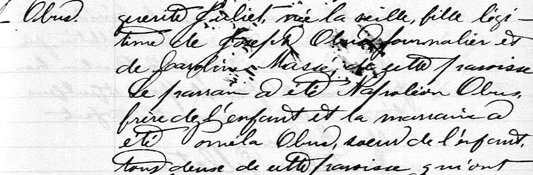 Obus. guerite Juliet, née la veille, fille légi-
time de Joseph Obus, journalier et
de Caroline Massé, de cette paroisse
Le parrain a été Napoléon Obus,
frère de l'enfant et la marraine a
été Obus, soeur de l'enfant,
tous deux de cette paroisse qui ont